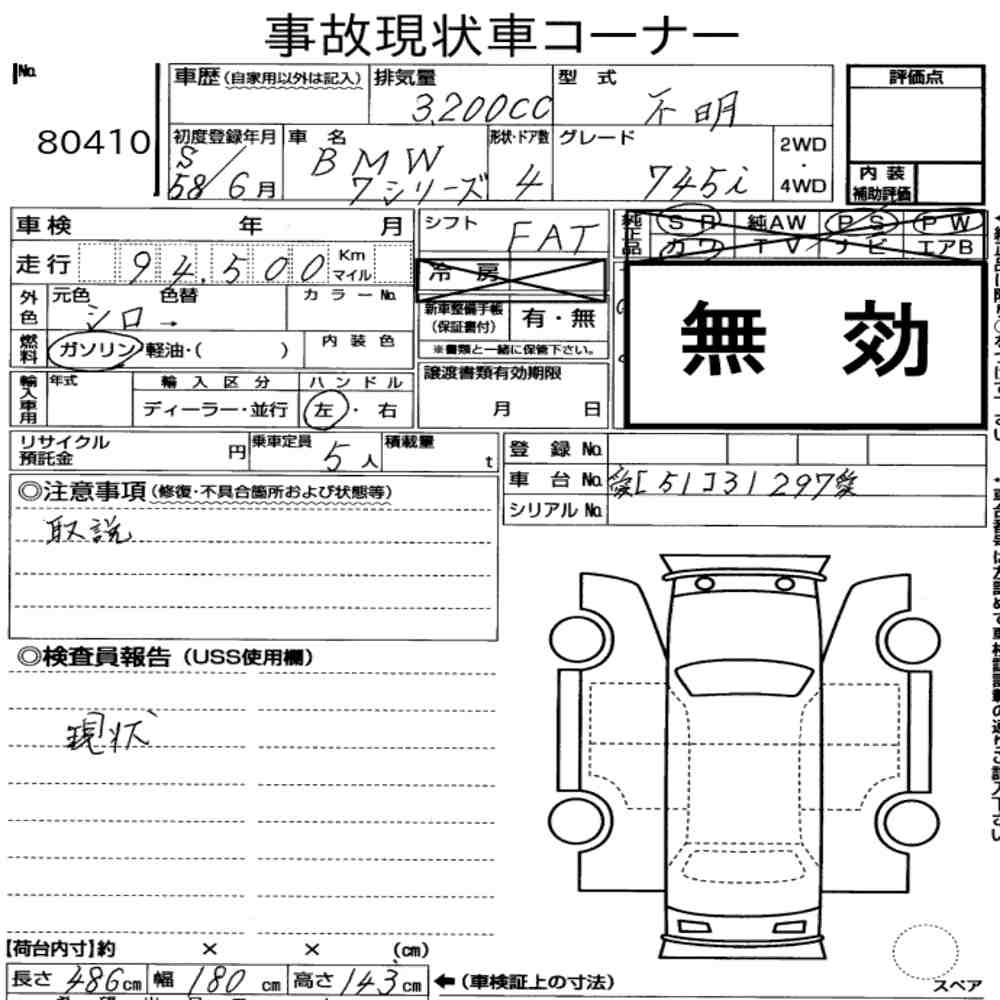 事故現状車コーナー
No. 80410
車歴(自家用以外は記入) 排気量 3,200CC 型式 不明 評価点
初度登録年月 S58/6月 車名 BMW 7シリーズ 形状・ドア数 4 グレード 745i 2WD・4WD
内装補助評価
車検 年 月 シフト FAT 純正品 SR 純AW PS PW
カワ TV ナビ エアB
走行 94,500 Km マイル 冷房
外色 元色 シロ → 色替 カラーNo. 新車整備手帳(保証書付) 有・無
無効
燃料 ガソリン・軽油・( ) 内装色 ※書類と一緒に保管下さい。
輸入車用 年式 輸入区分 ディーラー・並行 ハンドル 左・右 譲渡書類有効期限 月 日
リサイクル預託金 円 乗車定員 5人 積載量 t 登録No.
車台No. [51]31297
シリアルNo.
◎注意事項(修復・不具合箇所および状態等)
取説
◎検査員報告(USS使用欄)
現状
【荷台内寸】約 × × (cm)
長さ 486cm 幅 180cm 高さ 143cm ←(車検証上の寸法)
スペア